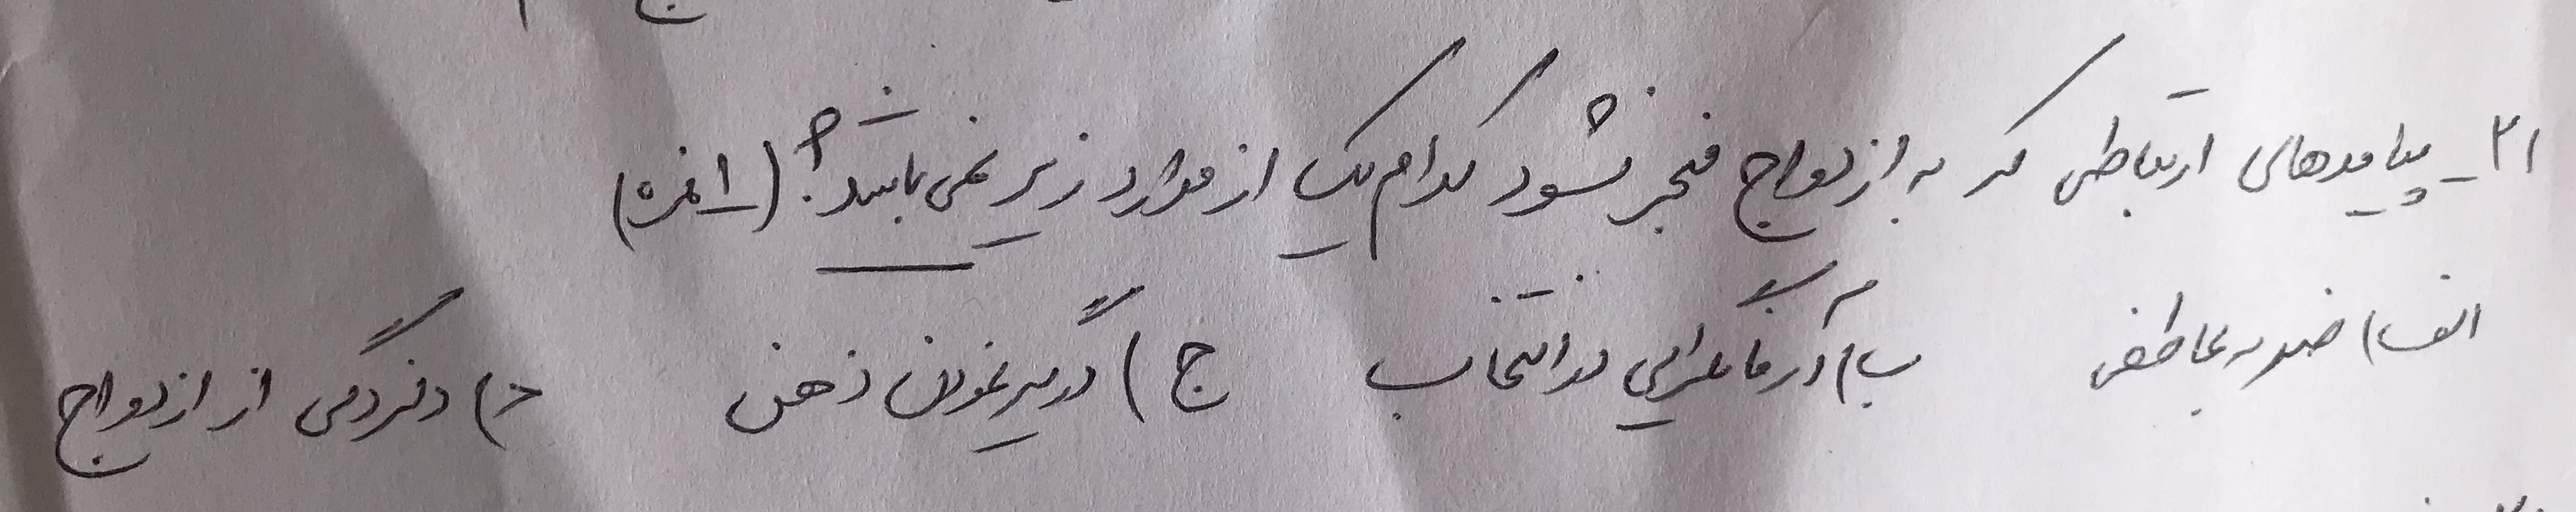 ۲۱- پیامدهای ارتباطی که به ازدواج منجر نشود کدام یک از موارد زیر نمی باشد؟ (۱ نمره)
الف) ضربه عاطفی ب) آرمانگرایی در انتخاب ج) درگیر نمودن ذهن د) دلزدگی از ازدواج